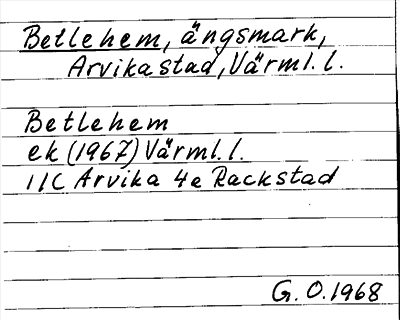 Betlehem, ängsmark,
Arvika stad, Värml. l.
Betlehem
ek (1967) Värml. l.
11C Arvika 4e Rackstad
G. O. 1968